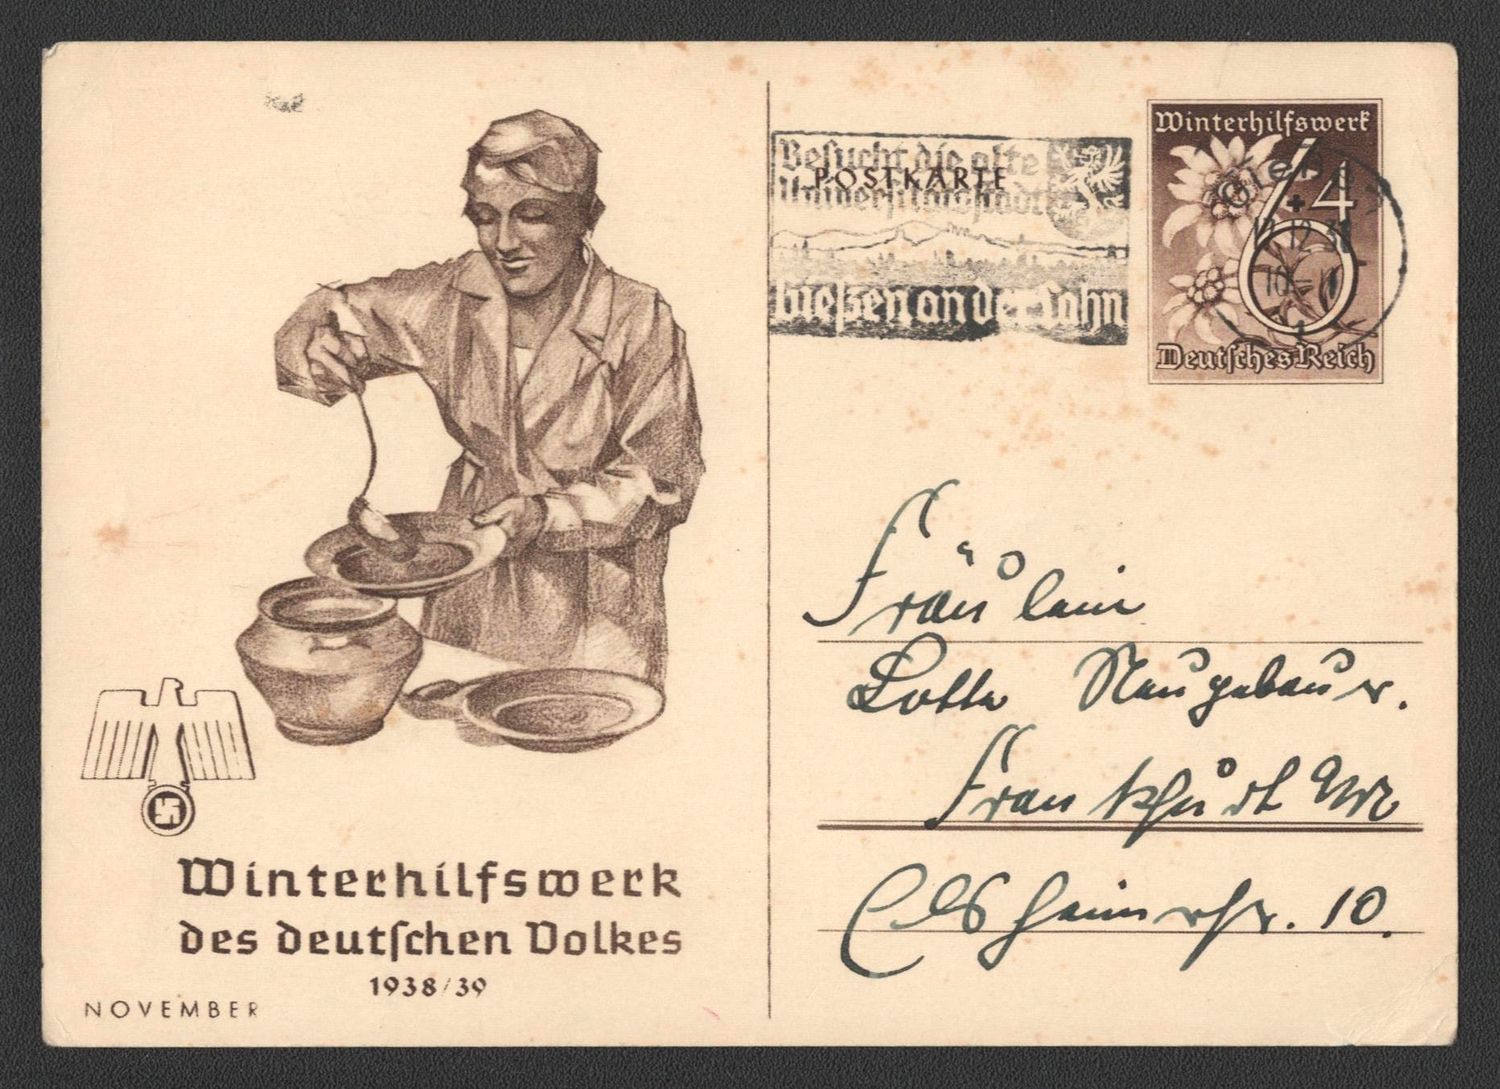 Winterhilfswerk
des deutschen Volkes
1938/39
NOVEMBER
Besucht die alte
Universitätsstadt
Gießen an der Lahn
POSTKARTE
Winterhilfswerk
6+4
Deutsches Reich
Gießen
12.38
1
Fräulein
Lotte Neugebauer.
Frankfurt M
Elsheimerstr. 10.